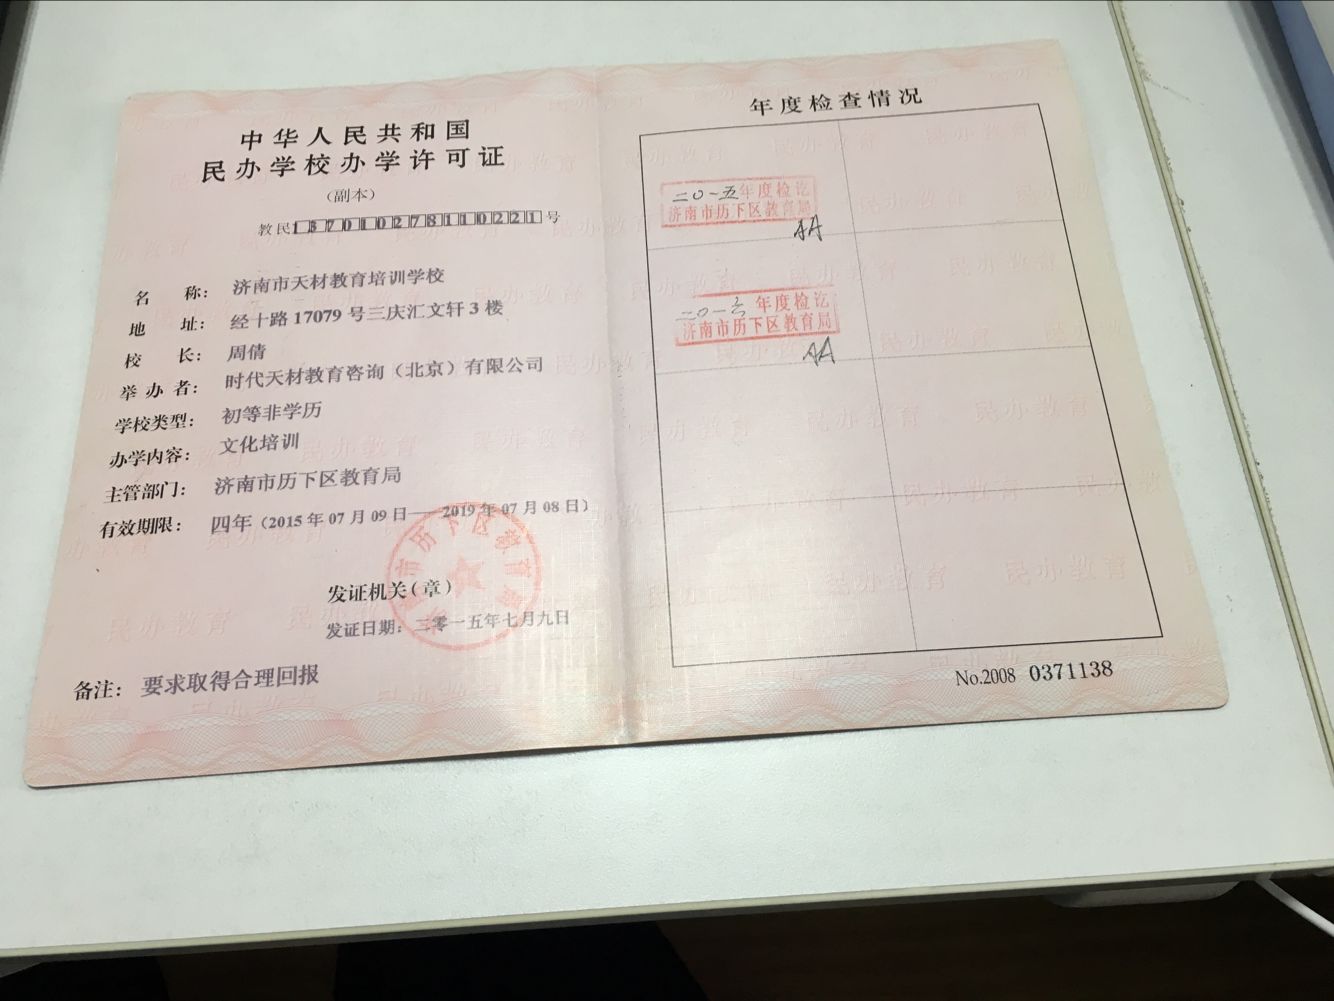 中华人民共和国
民办学校办学许可证
（副本）
教民137010278110221号
名称：济南市天材教育培训学校
地址：经十路 17079 号三庆汇文轩 3 楼
校长：周倩
举办者：时代天材教育咨询（北京）有限公司
学校类型：初等非学历
办学内容：文化培训
主管部门：济南市历下区教育局
有效期限：四年（2015 年 07 月 09 日——2019 年 07 月 08 日）
发证机关（章）
发证日期：二零一五年七月九日
备注：要求取得合理回报
年度检查情况
二〇一五年度检讫
济南市历下区教育局
二〇一六年度检讫
济南市历下区教育局
No.2008 0371138